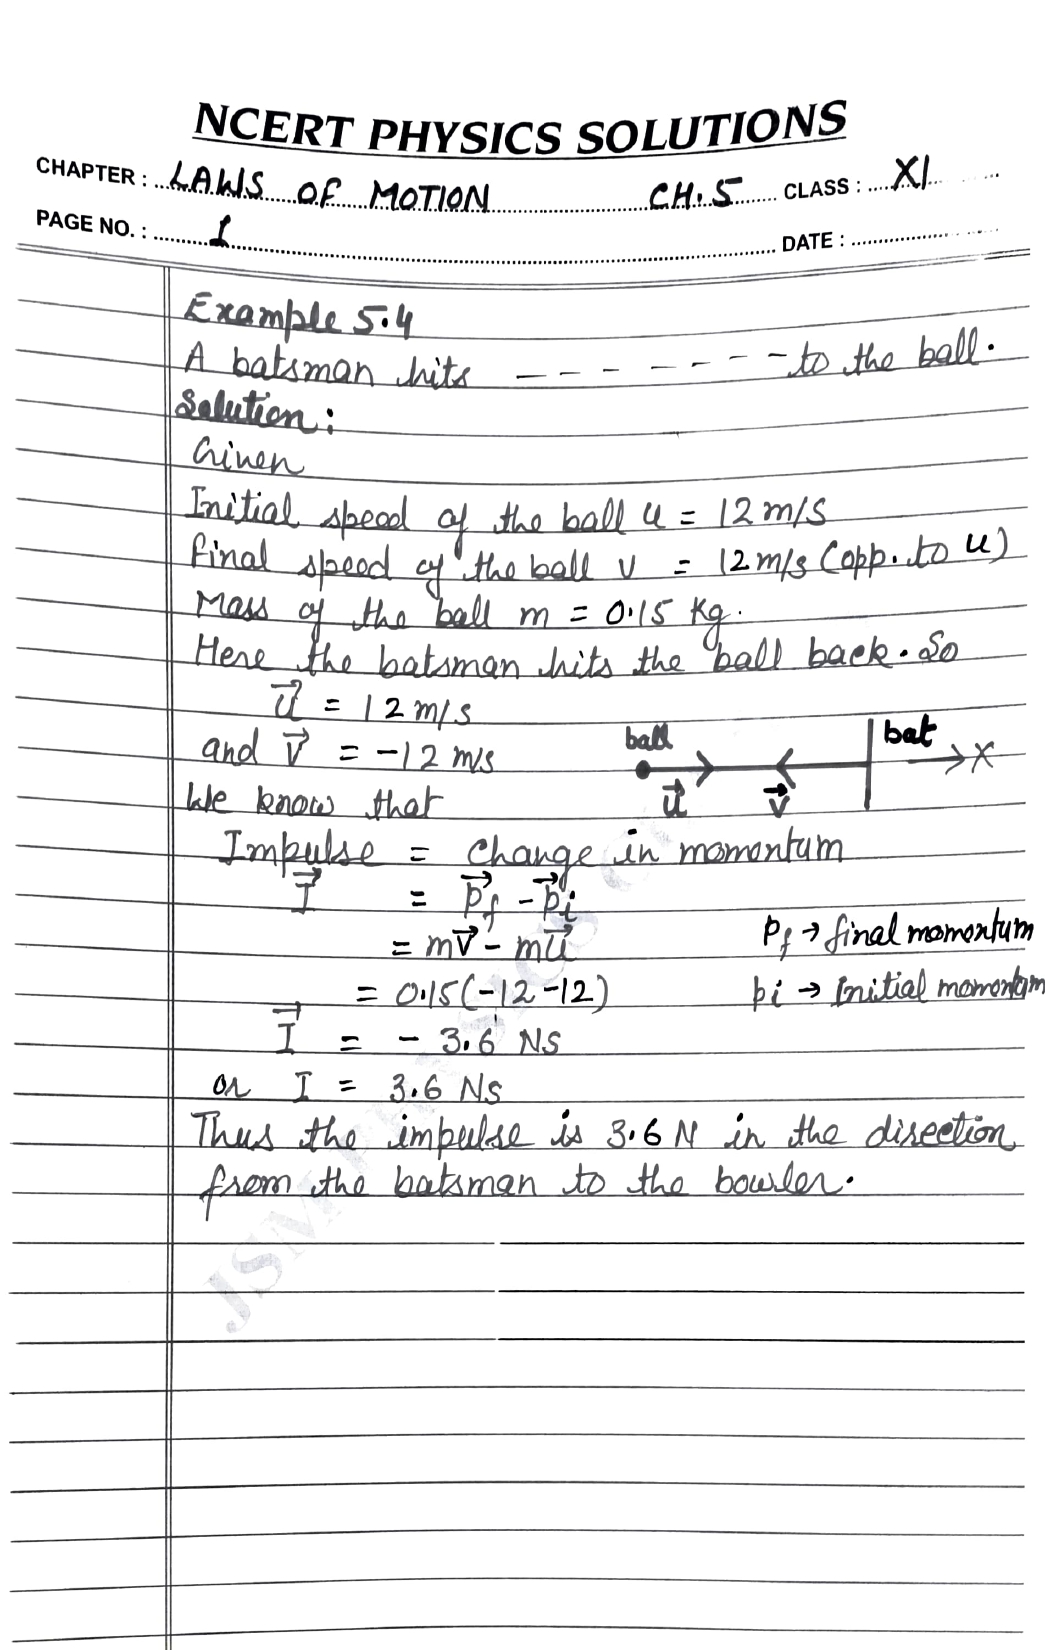 NCERT PHYSICS SOLUTIONS
CHAPTER : LAWS OF MOTION CH.5 CLASS : XI
PAGE NO. : 1 DATE :
Example 5.4
A batsman hits - - - - - - - to the ball.
Solution :
Given
Initial speed of the ball u = 12 m/s
final speed of the ball v = 12 m/s (opp. to u)
Mass of the ball m = 0.15 Kg.
Here the batsman hits the ball back. So
u⃗ = 12 m/s
and v⃗ = -12 m/s
ball bat
→ X
u⃗ v⃗
We know that
Impulse = change in momentum
I⃗ = p⃗f - p⃗i
= mv⃗ - mu⃗
Pf → final momentum
= 0.15(-12-12)
pi → Initial momentum
I⃗ = - 3.6 NS
or I = 3.6 Ns
Thus the impulse is 3.6 N in the direction
from the batsman to the bowler.